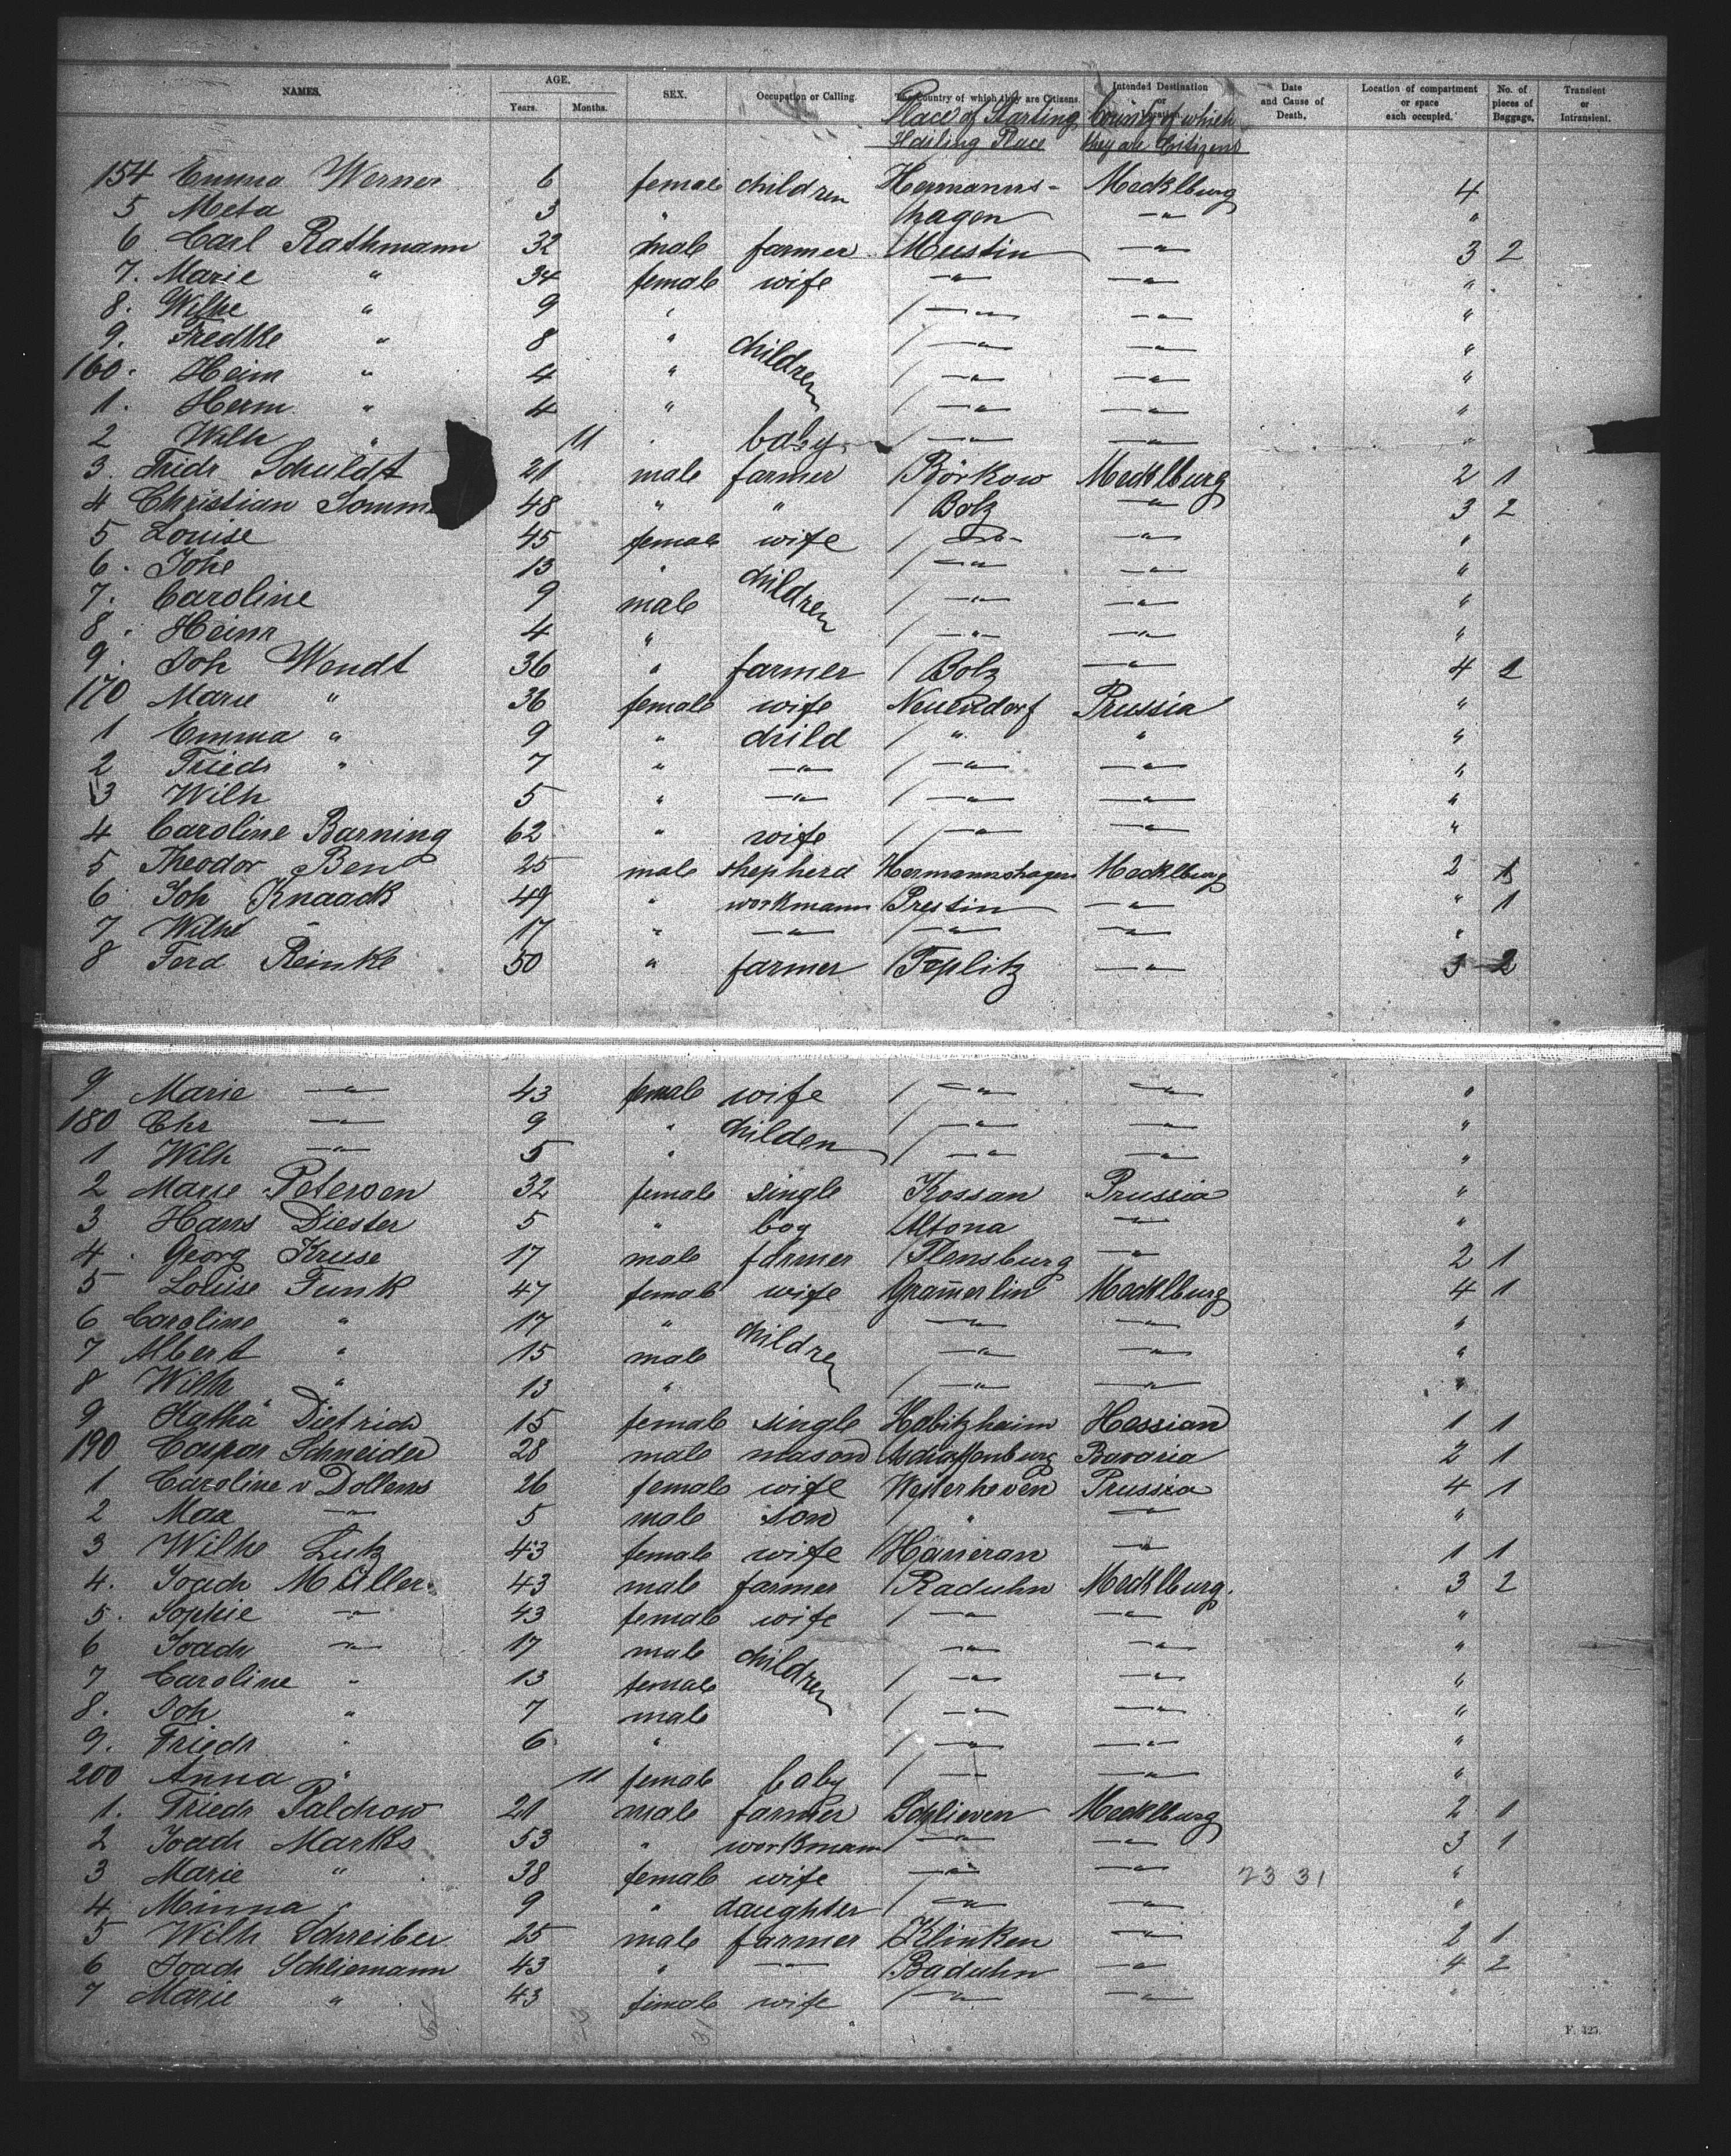 NAMES. AGE. Years. Months. SEX. Occupation or Calling. The Country of which they are Citizens. Intended Destination or Location. Date and Cause of Death. Location of compartment or space each occupied. No. of pieces of Baggage. Transient or Intransient.
Place of Starting Country of which
Hailing Place they are Citizens
154 Emma Werner 6 female children Hermanns- Mecklburg 4
5 Meta 3 " hagen —"— "
6 Carl Rathmann 32 male farmer Mustin —"— 3 2
7. Marie " 34 female wife —"— —"— "
8. Wilhe " 9 " —"— —"— "
9. Fredke " 8 " children —"— —"— "
160. Heim " 4 " —"— —"— "
1. Herm " 4 " —"— —"— "
2 Wilh " 11 " baby —"— —"— "
3. Friedr Schuldt 21 male farmer Börkow Mecklburg 2 1
4 Christian Somm 48 " " Bolz —"— 3 2
5 Louise 45 female wife —"— —"— "
6. Johe 13 " children —"— —"— "
7. Caroline 9 male —"— —"— "
8. Heinr 4 " —"— —"— "
9. Joh Wendt 36 " farmer Bolz —"— 4 1
170 Marie " 36 female wife Neuendorf Prussia "
1 Emma " 9 " child " " "
2 Friedr " 7 " —"— —"— —"— "
3 Wilh 5 " —"— —"— —"— "
4 Caroline Barning 62 " wife —"— —"— "
5 Theodor Ben 25 male shepherd Hermannshagen Mecklburg 2 1
6 Joh Knaack 49 " workmann Prestin —"— " 1
7 Wilhe " 17 " —"— —"— —"— "
8 Ferd Reinke 50 " farmer Toplitz —"— 3 2
9 Marie —"— 43 female wife —"— —"— "
180 Chr —"— 9 " childen —"— —"— "
1 Wilh —"— 5 " —"— —"— "
2 Marie Petersen 32 female single Kossan Prussia "
3 Hans Diester 5 " boy Altona —"— "
4. Georg Kruse 17 male farmer Flensburg —"— 2 1
5 Louise Funk 47 female wife Gramerlin Mecklburg 4 1
6 Caroline " 17 " children —"— —"— "
7 Albert " 15 male —"— —"— "
8 Wilh " 13 " —"— —"— "
9 Kathä Dietrich 15 female single Habitzheim Hessian 1 1
190 Caspar Schneider 28 male mason Aschaffenburg Bavaria 2 1
1 Caroline v Dollens 26 female wife Westerheven Prussia 4 1
2 Max —"— 5 male son " —"— "
3 Wilhe Lutz 43 female wife Haneran —"— 1 1
4. Joach Müller 43 male farmer Raduhn Mecklburg. 3 2
5. Sophie —"— 43 female wife —"— —"— "
6 Joach —"— 17 male children —"— —"— "
7 Caroline " 13 female —"— —"— "
8. Joh " 7 male —"— —"— "
9. Friedr " 6 " —"— —"— "
200 Anna " 11 female baby —"— —"— "
1. Friedr Palchow 21 male farmer Schlieven Mecklburg 2 1
2 Joach Marks 53 " workmann —"— —"— 3 1
3 Marie " 38 female wife —"— —"— 23 31 "
4. Minna " 9 " daughter —"— —"— "
5 Wilh Schreiber 25 male farmer Klinken —"— 2 1
6 Joach Schliemann 43 " —"— Raduhn —"— 4 2
7 Marie " 43 female wife —"— —"— "
F. 425.